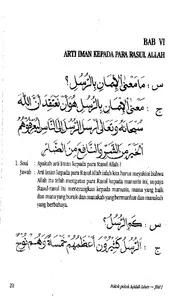 BAB VI
ARTI IMAN KEPADA PARA RASUL ALLAH
س : مامعنى الإيمان بالرسل ؟
ج : معنى الإيمان بالرسل هو أن نعتقد أن الله
سبحانه وتعالى أرسل الرسل إلى الناس ليعرفوهم
الخير من الشر والنافع من الضار
1. Soal : Apakah arti iman kepada para Rasul Allah ?
Jawab : Arti iman kepada para Rasul Allah ialah kita harus meyakini bahwa
Allah itu telah mengutus para Rasul kepada manusia ini, supaya
Rasul-rasul itu menerangkan kepada manusia, mana yang baik
dan mana yang buruk dan manakah yang bermanfaat dan manakah
yang berbahaya.
س : كم الرسل ؟
ج : الرسل كثيرون أعظمهم خمسة وهم نوح
20
Pokok-pokok Aqidah Islam — Jilid I